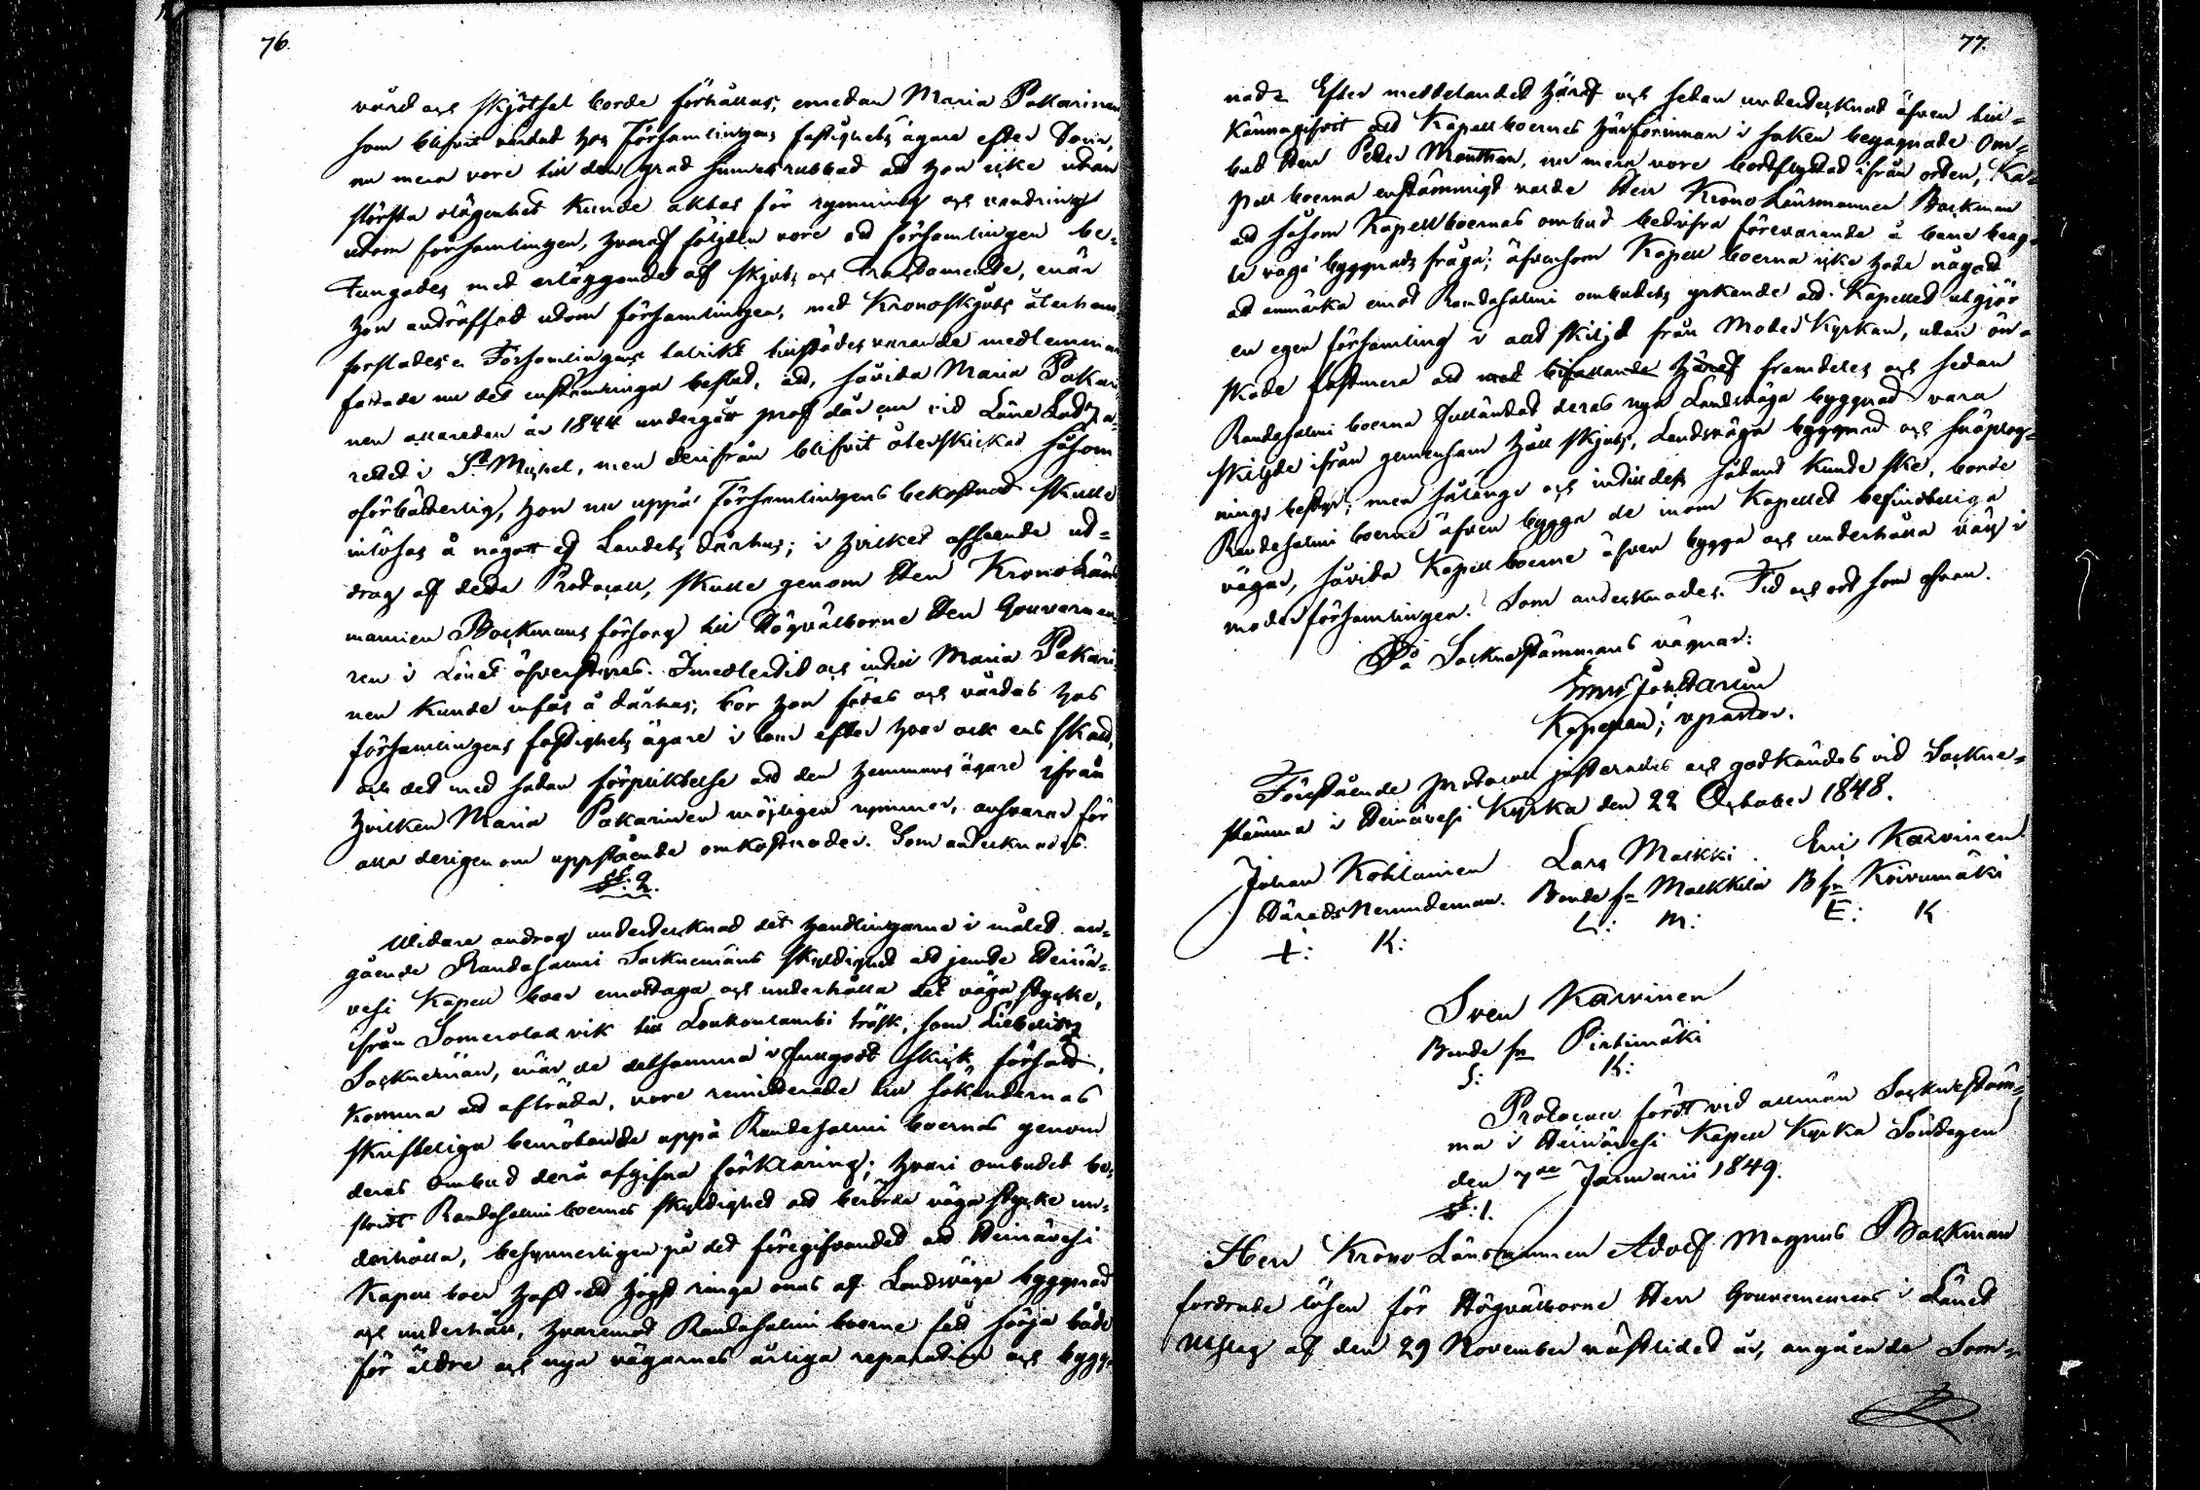 76.
vård och skjötsel borde förhållas; emedan Maria Pakarinen
som blifvit vårdad hos Församlingens fastighets ägare efter Tour,
nu mera vore till den grad sinnesrubbad att hon icke utan
största olägenhet kunde aktas för rymning och vandring
utom församlingen, hvaraf följden vore att församlingen be-
tungades med erläggande af skjuts och Tractamente, enär
hon anträffad utom församlingen, med Kronoskjuts återhem-
forslades. Församlingens talrikt tillstädesvarande medlemmar
fattade nu det enstämmiga beslut, att, såvida Maria Pakari-
nen allaredan år 1844 undergått prof dår en vid Läne Laza-
rettet i St Michel, men derifrån blifvit återskickad såsom
oförbätterlig, hon nu uppå Församlingens bekostnad skulle
inlösas å något af Landets dårhus; i hvilket afseende ut-
drag af detta Protocoll, skulle genom Herr Kronolän-
smannen Backmans försorg till Högvälborne Herr Gouverneu-
ren i Länet öfversändas. Imedlertid och intill Maria Pakari-
nen kunde infås å dårhus, bör hon födas och vårdas hos
församlingens fastighets ägare i tour efter hvar ock ens skatt,
och det med sådan förpliktelse att den hemmans ägare ifrån
hvilken Maria Pakarinen möjligen rymmer, ansvarar för
alla derigenom uppstående omkostnader. Som antecknades.
§: 2.
Widare androg undertecknad det handlingarne i målet an-
gående Randasalmi Socknemäns skyldighet att jemte Heinä-
vesi Kapell boer emottaga och underhålla det väga stycke,
ifrån Somerolax vik till Loukoulambi träsk, som Libelits
Sockenmän, enär de detsamma i fullgodt skick försatt,
komma att afträda, vore remitterade till sökandernas
skriftliga bemötande uppå Randasalmi boernas genom
deras Ombud derå afgifna förklaring; hvari ombudet be-
stridt Randasalmi boernes skyldighet att berörde väga stycke un-
derhålla, besynnerligen på det föregifvandet att Heinävesi
Kapell boer haft ett högst ringa onus af Landsväga byggnad
och underhåll, hvaremot Randasalmi boerne fått sörja både
för äldre och nya vägarnes årliga reparation och bygg-
77.
nad. Efter meddelandet häraf och sedan undertecknad äfven till-
kännagifvit att Kapell boernes härförinnan i saken begagnade Om-
bud Herr Peter Mantman, nu mera vore bortflyttad ifrån orten, Ka-
pell boerna enstämmigt valde Herr Krono Länsmannen Backman
att såsom Kapellboernas ombud bedrifva förevarande å bane brag-
te väga byggnads fråga; äfvensom Kapell boerna icke hade något
att anmärka emot Randasalmi ombudets yrkande att Kapellet utgjör
en egen församling i allt skiljd från Moder Kyrkan, utan ön-
skade fastmera att med bifallande häraf framdeles och sedan
Randasalmi boerna fulländat deras nya Landsväga byggnad vara
skiljde ifrån gemensam håll skjuts, Landsväga byggnad och snöplog-
nings bestyr; men sålänge och intilldess sådant kunde ske, borde
Randasalmi boerne äfven bygga de inom Kapellet befindtlige
vägar, såvida Kapell boerne äfven bygga och underhålla väg i
moderförsamlingen. Som antecknades. Tid och ort som ofvan.
På Sockne Stämmans vägnar:
Kapellan, v pastor.
Förestående Protocoll justerades och godkändes vid Sockne-
stämma i Heinävesi Kyrka den 22 October 1848.
Johan Kohlainen Lars Malkki. Eric Karvinen
HäradsNemndeman. Bonde fr. Malkkila B fr. Koivumäki
I: K: L: M: E: K
Sven Karvinen
Bonde fr. Pirtimäki
S: K:
Protocoll fördt vid allmän Socknestäm-
ma i Heinävesi Kapell Kyrka Söndagen
den 7de Januarii 1849.
§: 1.
Herr Krono Länsmannen Adolf Magnus Backman
fordrade lösen för Högvälborne Herr Gouverneurens i Länet
Utslag af den 29 November nästlidet år, angående Som-